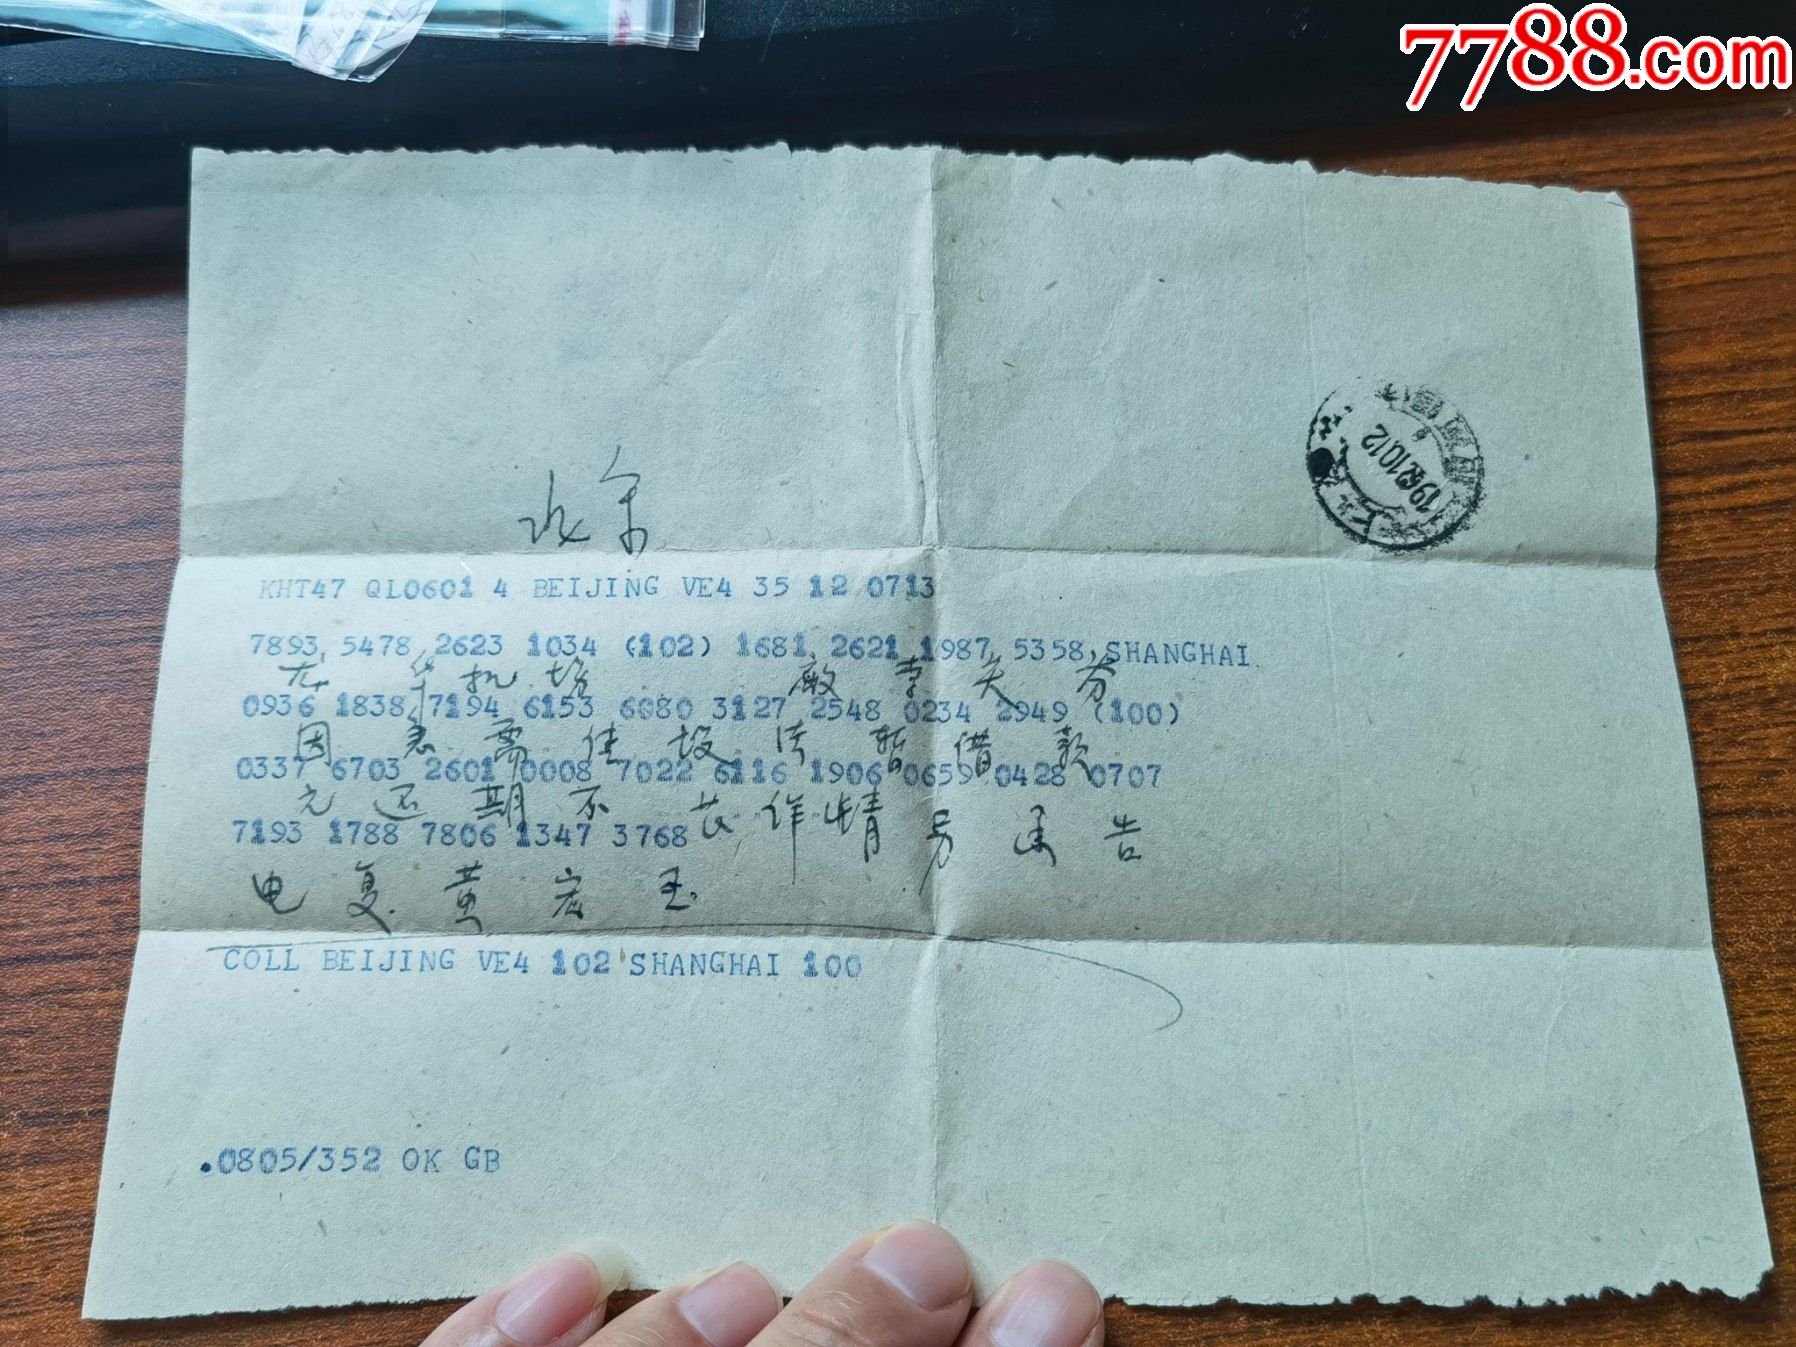 7788.com
北京
KHT47 QL0601 4 BEIJING VE4 35 12 0713
7893 5478 2623 1034 (102) 1681 2621 1987 5358 SHANGHAI
龙华机场 廠李 芬
0936 1838 7194 6153 6080 3127 2548 0234 2949 (100)
因急需 设法暂借款
0337 6703 2601 0008 7022 6116 1906 0659 0428 0707
元还期不长详情另函告
7193 1788 7806 1347 3768
电复黄宏玉
COLL BEIJING VE4 102 SHANGHAI 100
.0805/352 OK GB
1962.10.12